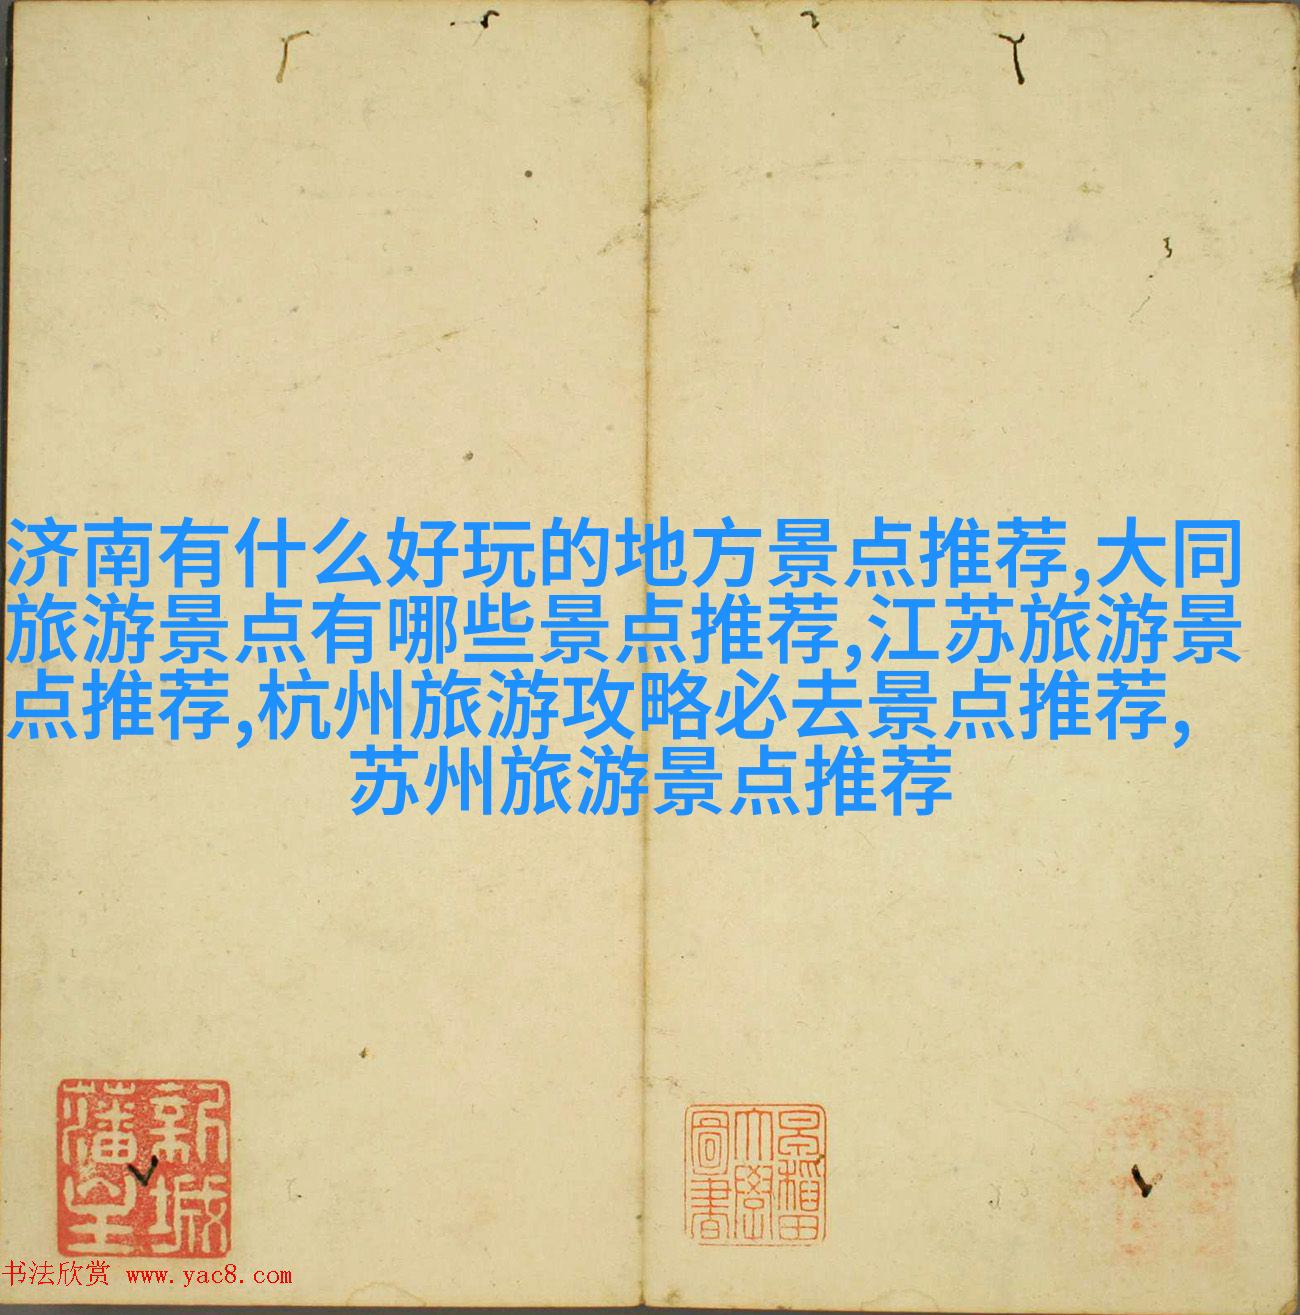 济南有什么好玩的地方景点推荐,大同
旅游景点有哪些景点推荐,江苏旅游景
点推荐,杭州旅游攻略必去景点推荐,
苏州旅游景点推荐
新城
藩室
早稲田
大學
圖書
书法欣赏 www.yac8.com